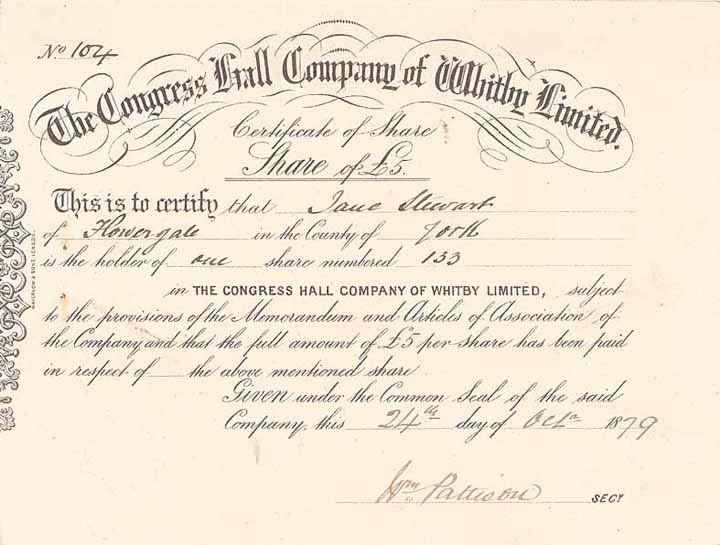 No 104
The Congress Hall Company of Whitby Limited.
Certificate of Share
Share of £5.
This is to certify that Jane Stewart
of Flowergate in the County of York
is the holder of one share numbered 133
in THE CONGRESS HALL COMPANY OF WHITBY LIMITED, subject
to the provisions of the Memorandum and Articles of Association of
the Company and that the full amount of £5 per share has been paid
in respect of the above mentioned share.
Given under the Common Seal of the said
Company, this 24th day of Octr 1879
Wm Pattison SECY